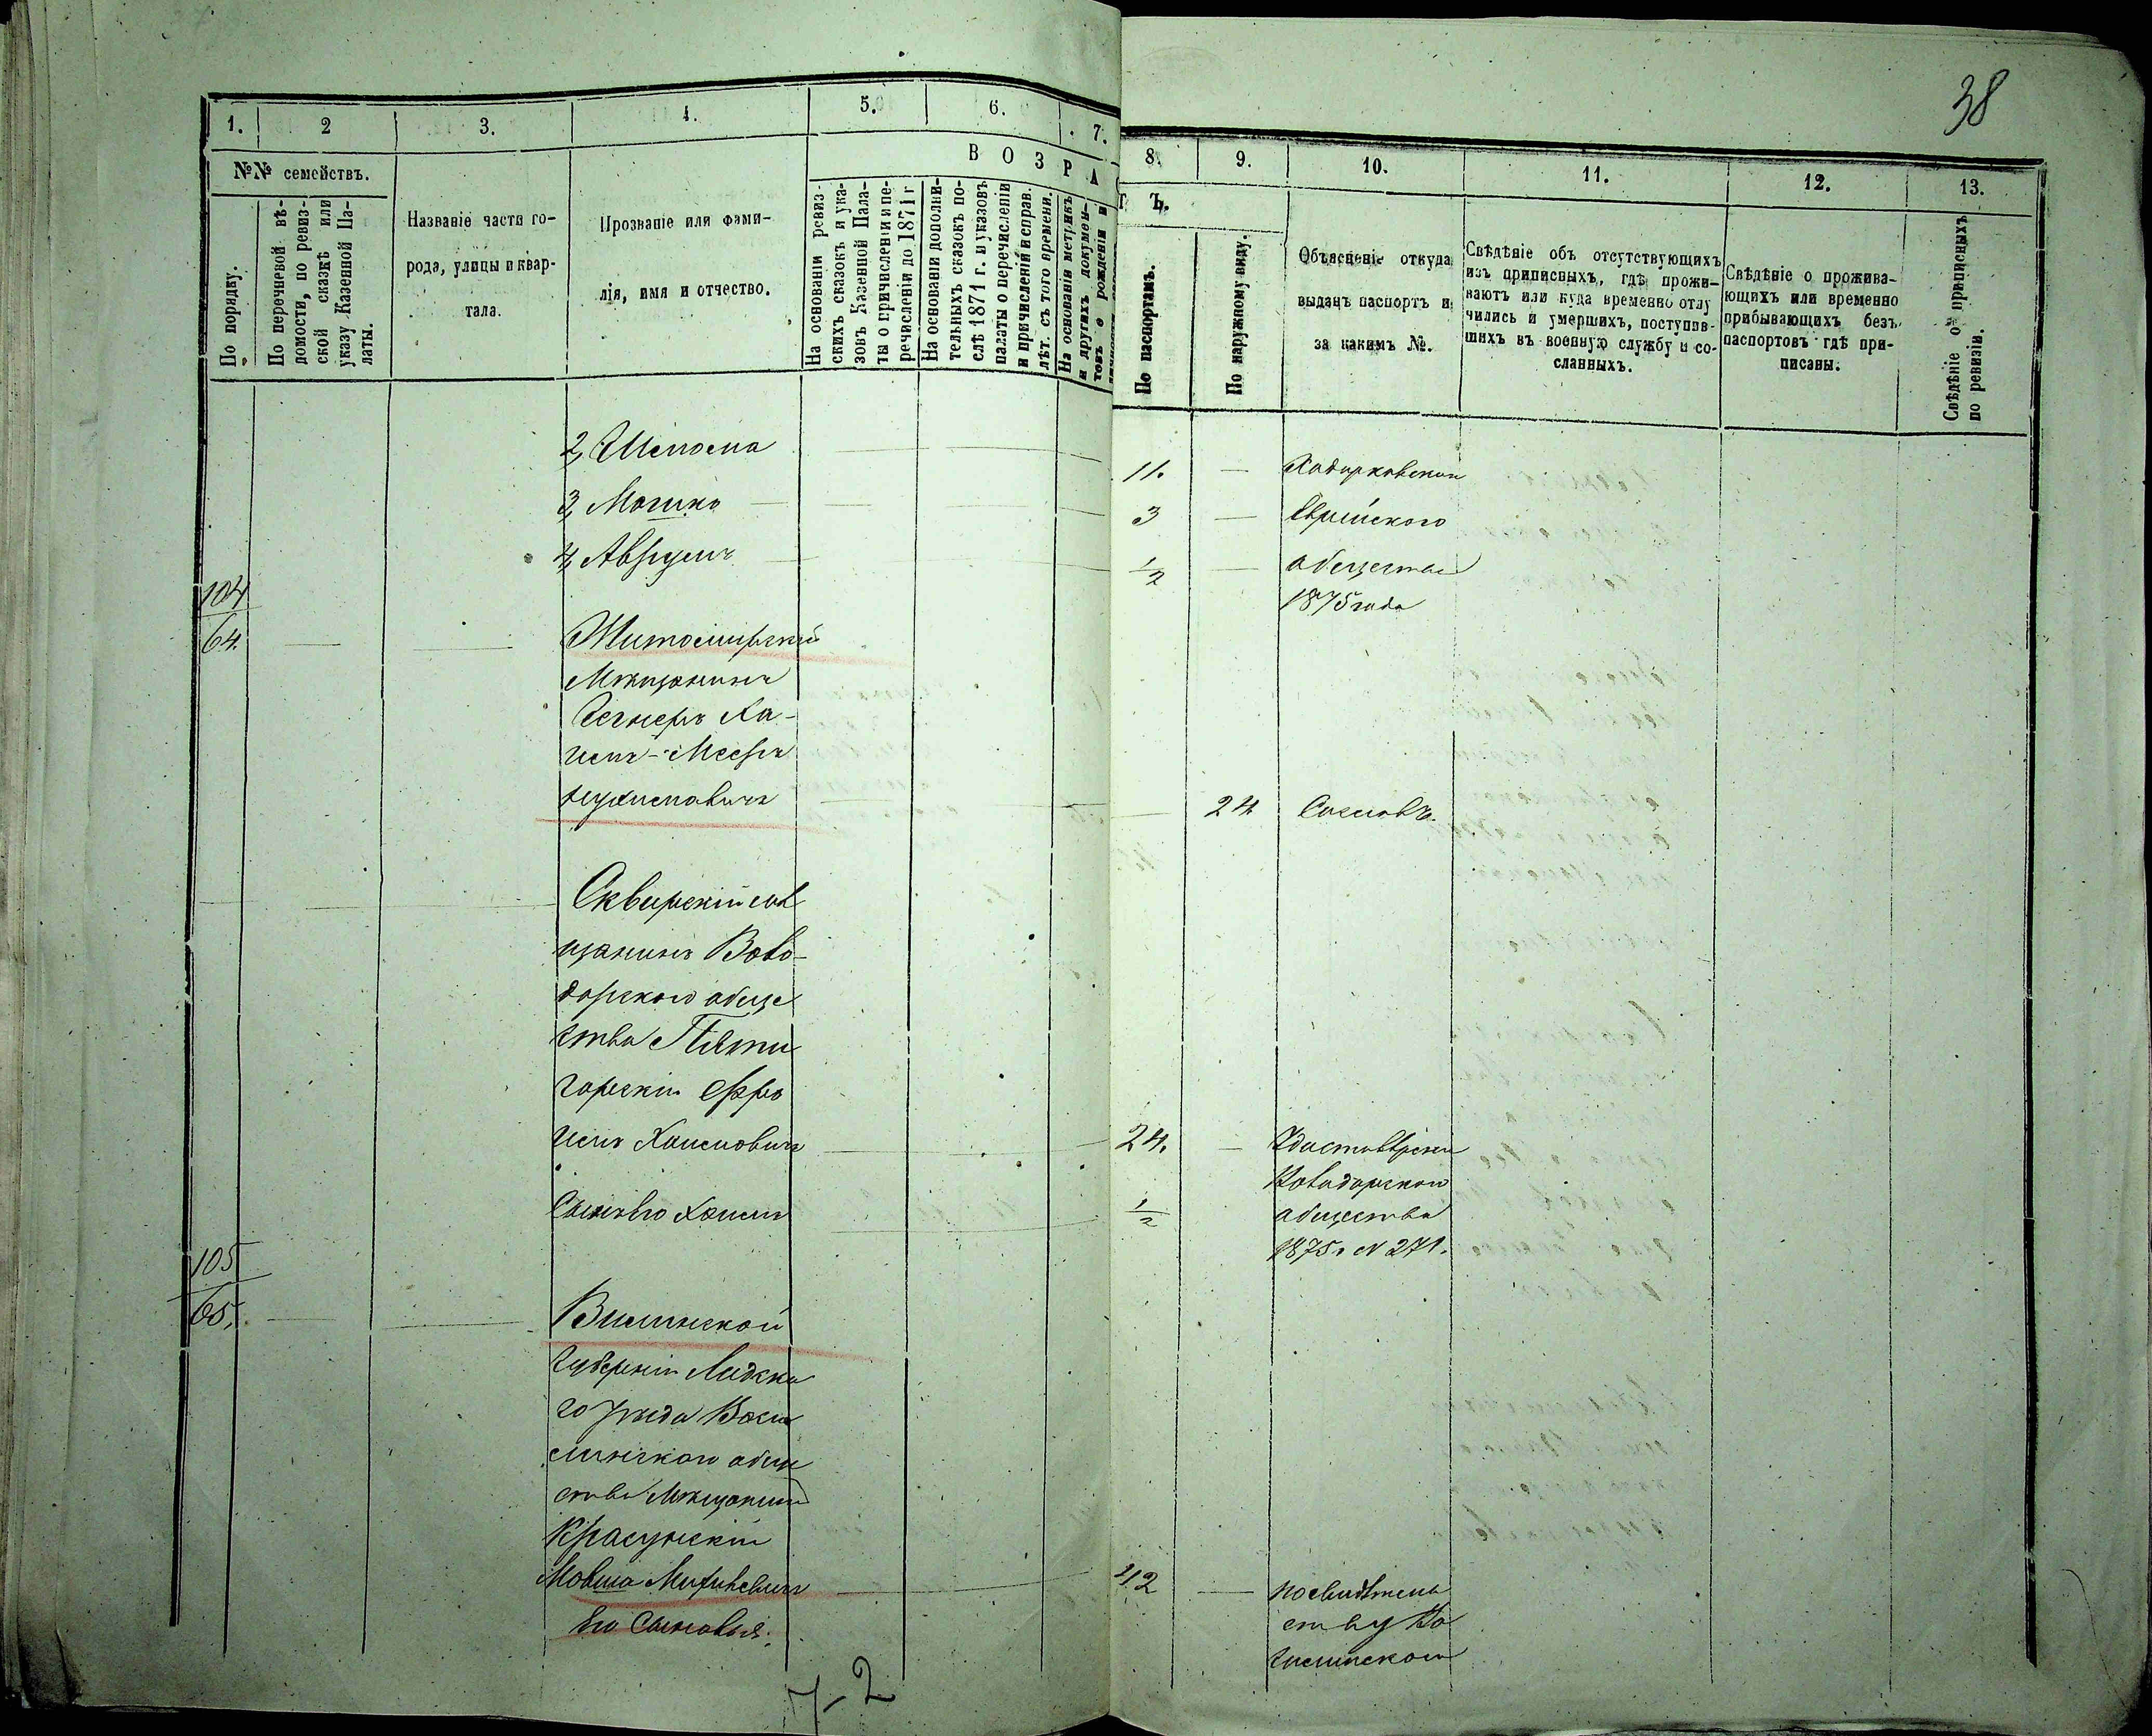 38
1. 2 3. 4. 5. 6. 7. 8. 9. 10. 11. 12. 13.
№№ семействъ.
По порядку.
По перечневой вѣ-
домости, по ревиз-
ской сказкѣ или
указу Казенной Па-
латы.
Названіе части го-
рода, улицы и квар-
тала.
Прозваніе или фами-
лія, имя и отчество.
ВОЗРАСТЪ.
На основаніи ревиз-
скихъ сказокъ и ука-
зовъ Казенной Пала-
ты о причисленіи и пе-
речисленіи до 1871 г
На основаніи дополни-
тельныхъ сказокъ по-
слѣ 1871 г. и указовъ
палаты о перечисленіи
и причисленій и справ.
лѣт. съ того времени.
На основаніи метрикъ
и другихъ докумен-
товъ о рожденіи и
По паспортамъ.
По наружному виду.
Объясненіе откуда
выданъ паспортъ и
за какимъ №.
Свѣдѣніе объ отсутствующихъ
изъ приписныхъ, гдѣ прожи-
ваютъ или куда временно отлу
чились и умершихъ, поступив-
шихъ въ военную службу и со-
сланныхъ.
Свѣдѣніе о прожива-
ющихъ или временно
прибывающихъ безъ
паспортовъ гдѣ при-
писаны.
Свѣдѣніе о приписныхъ
по ревизіи.
2, Шепсель 11. — Ходорковскаго
3, Мошко 3 — Еврейскаго
4, Аврумъ 1/2 — общества
1875 года
104
64. Житомирскій
Мѣщанинъ
Ха-
имъ-Мееръ
24 Сословъ.
Сквирскій мѣ
щанинъ Воло-
дарскаго обще
ства Пяти
горскій Ефро
имъ Хаимовичъ 24. —
Володарскаго
Сынъ его Хаимъ 1/2 общества
1875 г № 271.
105
65. Виленской
Губерніи Лидска
го уѣзда Васи
лишскаго обще
ства Мѣщанинъ
Мовша 42 — по свидѣтель
Его Сыновья: ству Ва
силишскаго
7-2